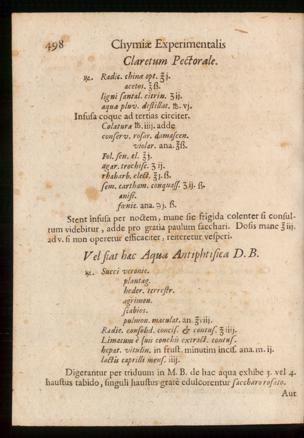 498 Chymiæ Experimentalis
Claretum Pectorale.
℞. Radic. chinæ opt. ℥j.
acetos. ℥ß.
ligni santal. citrin. ʒij.
aquæ pluv. destillat. ℔. vj.
Infusa coque ad tertias circiter.
Colaturæ ℔. iiij. adde
conserv. rosar. damascen.
violar. ana. ℥ß.
Fol. sen. el. ℥j.
agar. trochisc. ʒ ij.
rhabarb. elect. ℥j. ß.
sem. cartham. conquass. ʒ ij. ß.
anisi.
fœnic. ana. ℈j. ß.
Stent infusa per noctem, mane sic frigida colentur si consul-
tum videbitur, adde pro gratia paulum sacchari. Dosis mane ℥ iij.
adv. si non operetur efficaciter, iteretur vesperi.
Vel fiat hæc Aqua Antiphtisica D. B.
℞. Succi veronic.
plantag.
heder. terrestr.
agrimon.
scabios.
pulmon. maculat. an. ℥iij.
Radic. consolid. concis. & contus. ℥ iiij.
Limacum è suis conchis extract. contus.
hepat. vitulin. in frust. minutim incis. ana. m. ij.
lactis caprilli mens. iiij.
Digerantur per triduum in M. B. de hac aqua exhibe 3. vel 4.
haustus tabido, singuli haustus gratè edulcorentur saccharo rosato.
Aut